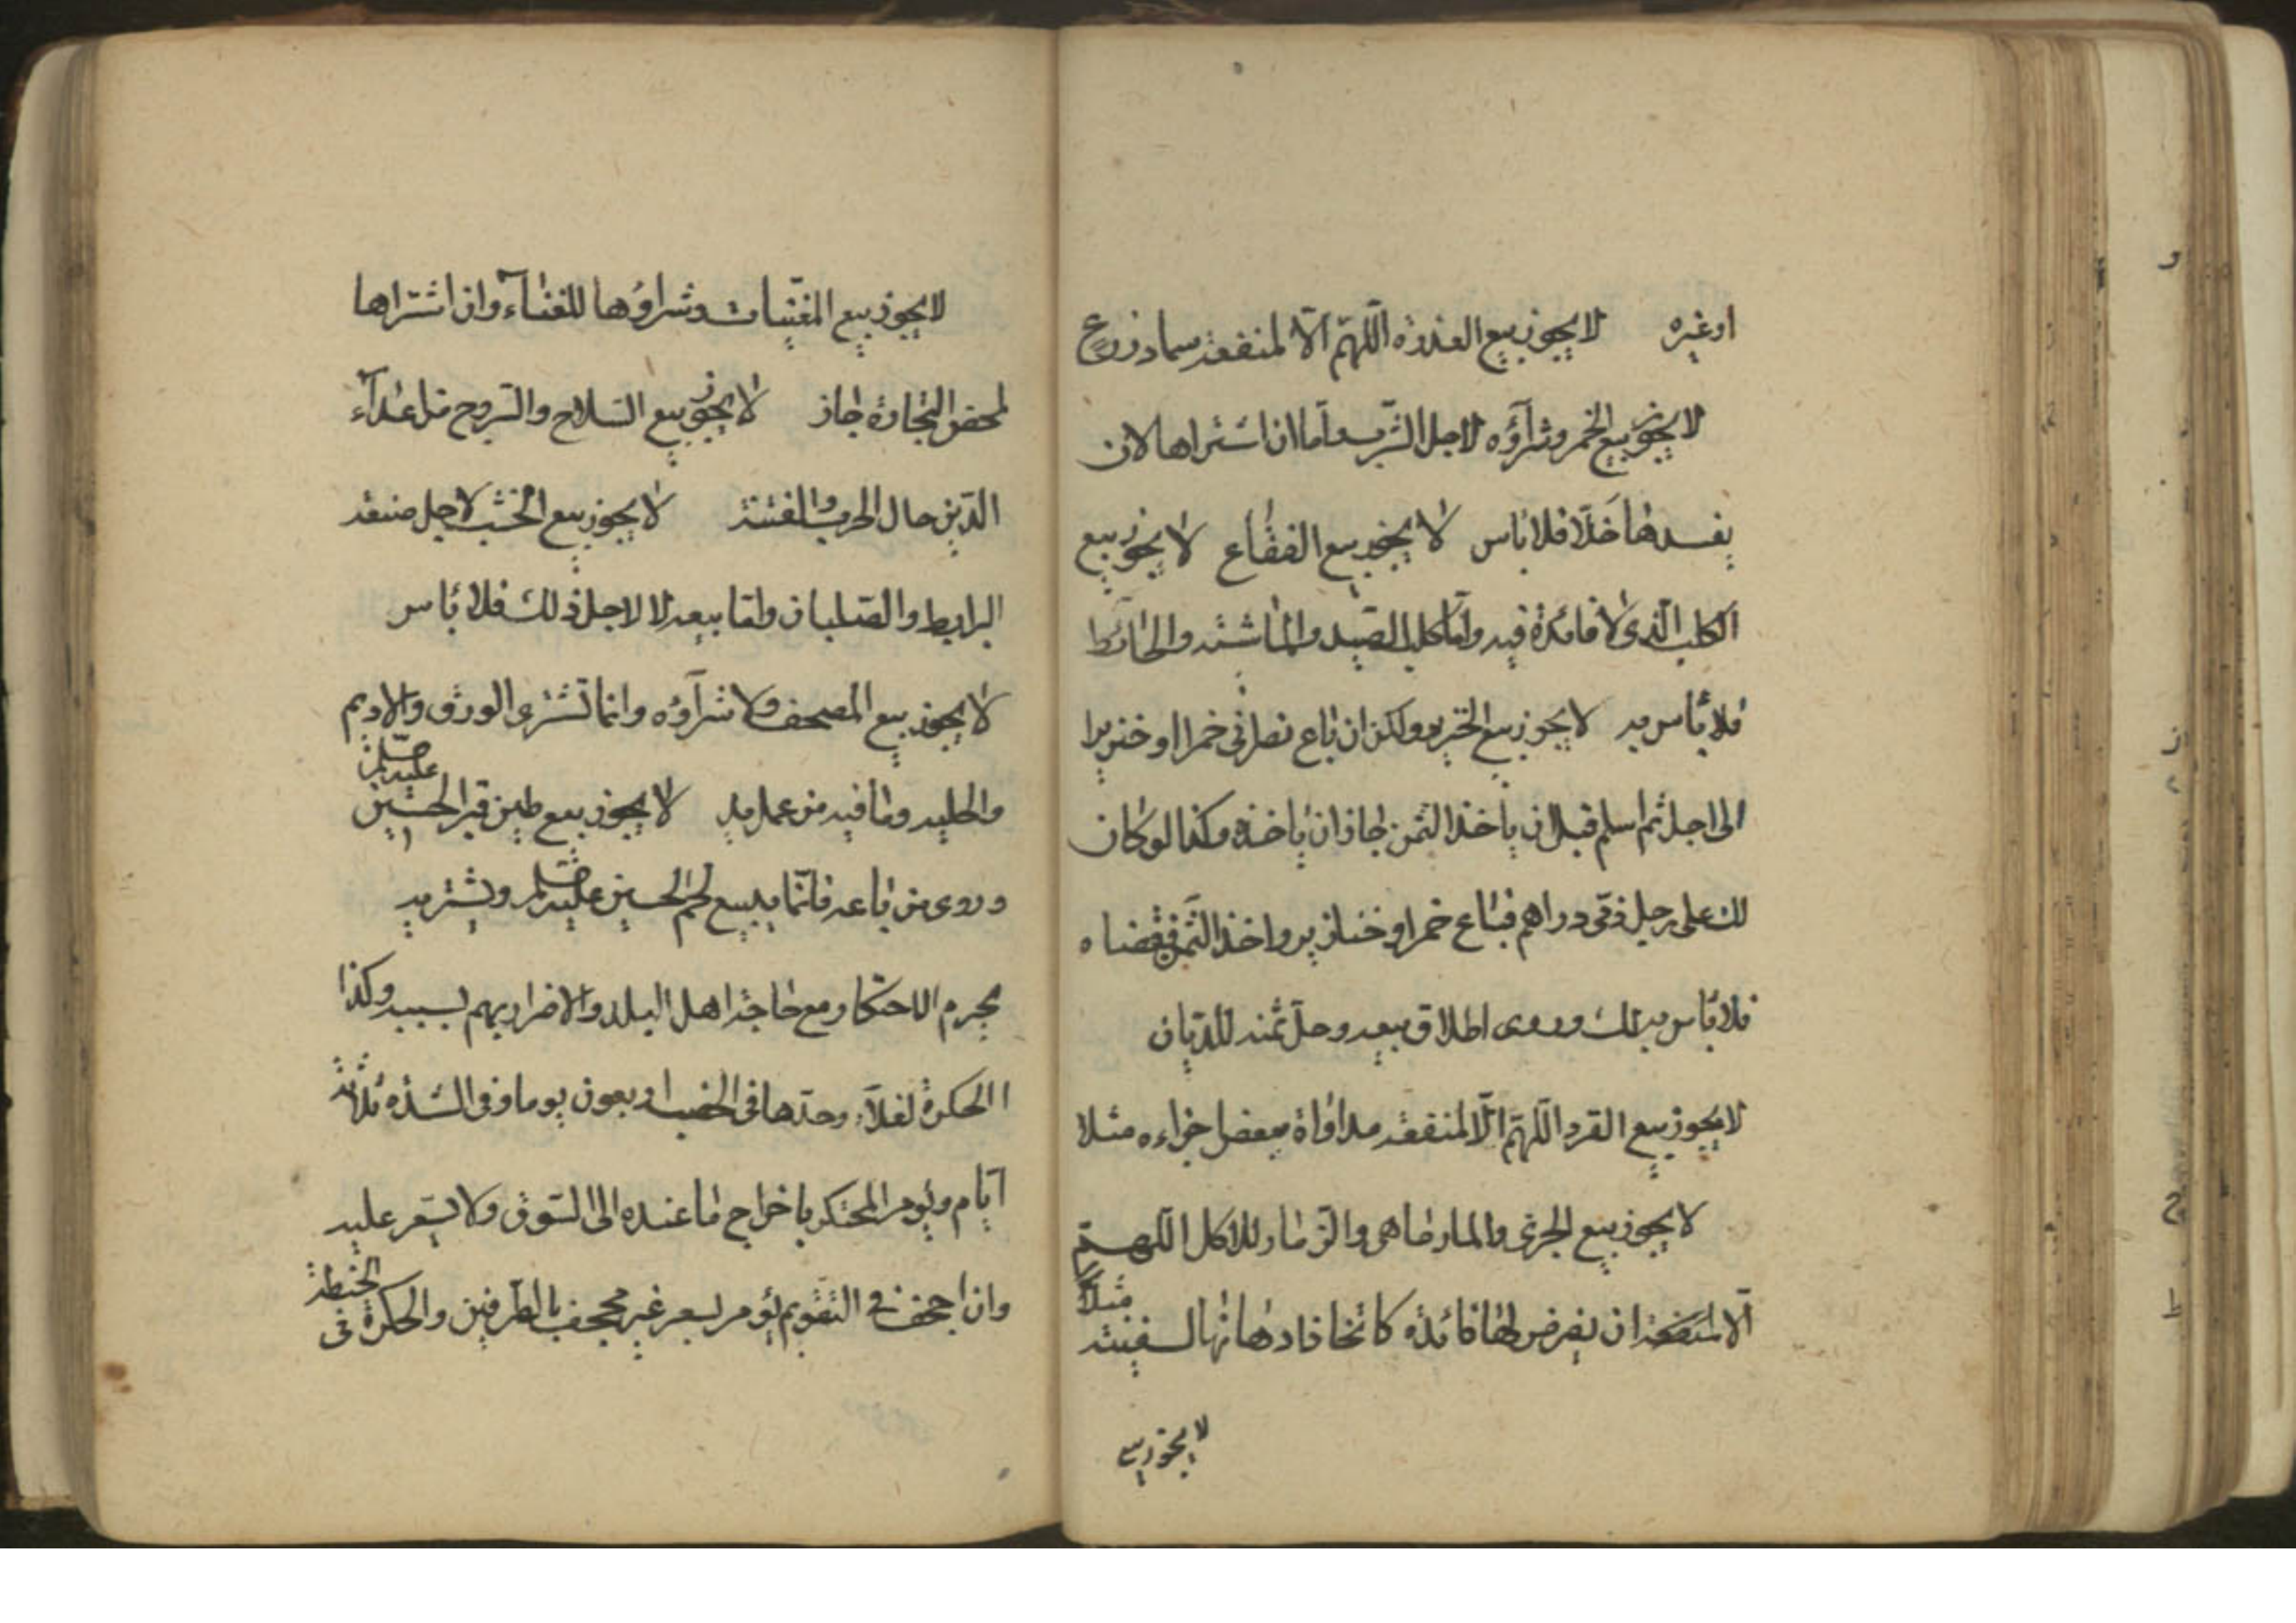 او غيره لا يجوز بيع العذرة اللّهمّ الّا لمنفعة سماد زرع
لا يجوز بيع الخمر وشرآؤه لاجل الشرب وامّا ان اشتراها لان
يفسدها خلّا فلا باس لا يجوز بيع الفقّاع لا يجوز بيع
الكلب الّذى لا فائدة فيه وامّا كلب الصّيد والماشية والحائط
فلا بأس به لا يجوز بيع الخنزير ولكن ان باع نصرانى خمرا او خنزيرا
الى اجل ثم اسلم قبل ان ياخذ الثمن جاز ان ياخذه وكذا لو كان
لك على رجل ذمّى دراهم فباع خمرا وخنازير واخذ الثّمن فقضاه
فلا بأس بذلك وروى اطلاق بيعه وحلّ ثمنه للدّيان
لا يجوز بيع القرد اللّهمّ الّا لمنفعة مداواة ببعض اجزاءه مثلا
لا يجوز بيع الجرّى والمارماهى والزّمار للاكل اللّهمّ
الّا لمنفعة ان يفرض لها فائدة كاتخاذ ادهانها لسفينة مثلاً
لا يجوز بيع
لا يجوز بيع المغنّيات وشراؤها للغناء وان اشتراها
لمحض التجارة جاز لا يجوز بيع السّلاح والسّروج من اعدآء
الدّين حال الحرب والفتنة لا يجوز بيع الخشب لاجل صنعة
البرابط والصّلبان وامّا بيعه لا لاجل ذلك فلا بأس
لا يجوز بيع المصحف ولا شرآؤه وانما تشترى الورق والاديم
والحليه وما فيه من عمل يد لا يجوز بيع طين قبر الحسين عليه
وروى من باعه فانّما يبيع لحم الحسين عليه ويشتريه
يحرم الاحتكار مع حاجة اهل البلد والاضرار بهم بسببه وكذا
الحكرة لغلآء وحدّها فى الخصب اربعون يوما وفى الشدّه ثلاثة
ايّام ويؤمر المحتكر باخراج ما عنده الى السّوق ولا يسعّر عليه
وان اجحف فى التقويم يؤمر بسعر غير مجحف بالطّرفين والحكرة فى الحنطة